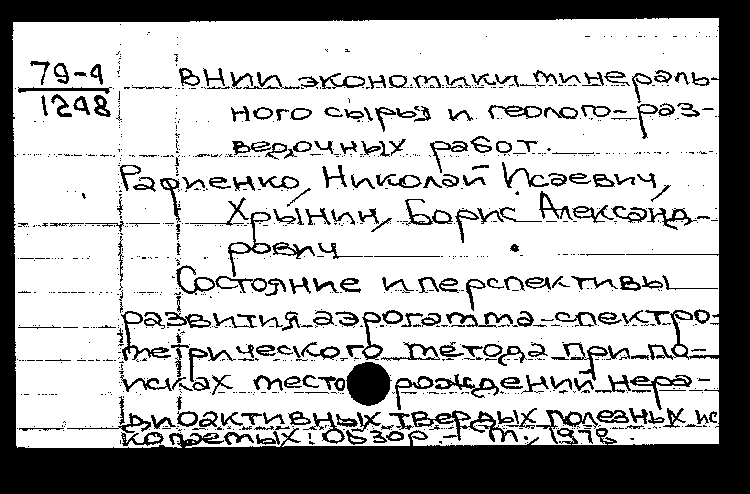 79-4
1248
ВНИИ экономики минераль-
ного сырья и геолого-раз-
ведочных работ.
Рафиенко, Николай Исаевич,
Хрынин, Борис Александ-
рович
Состояние и перспективы
развития аэрогамма-спектро-
метрического метода при по-
исках месторождений нера-
диоактивных твердых полезных ис
копаемых: Обзор. - М., 1978.